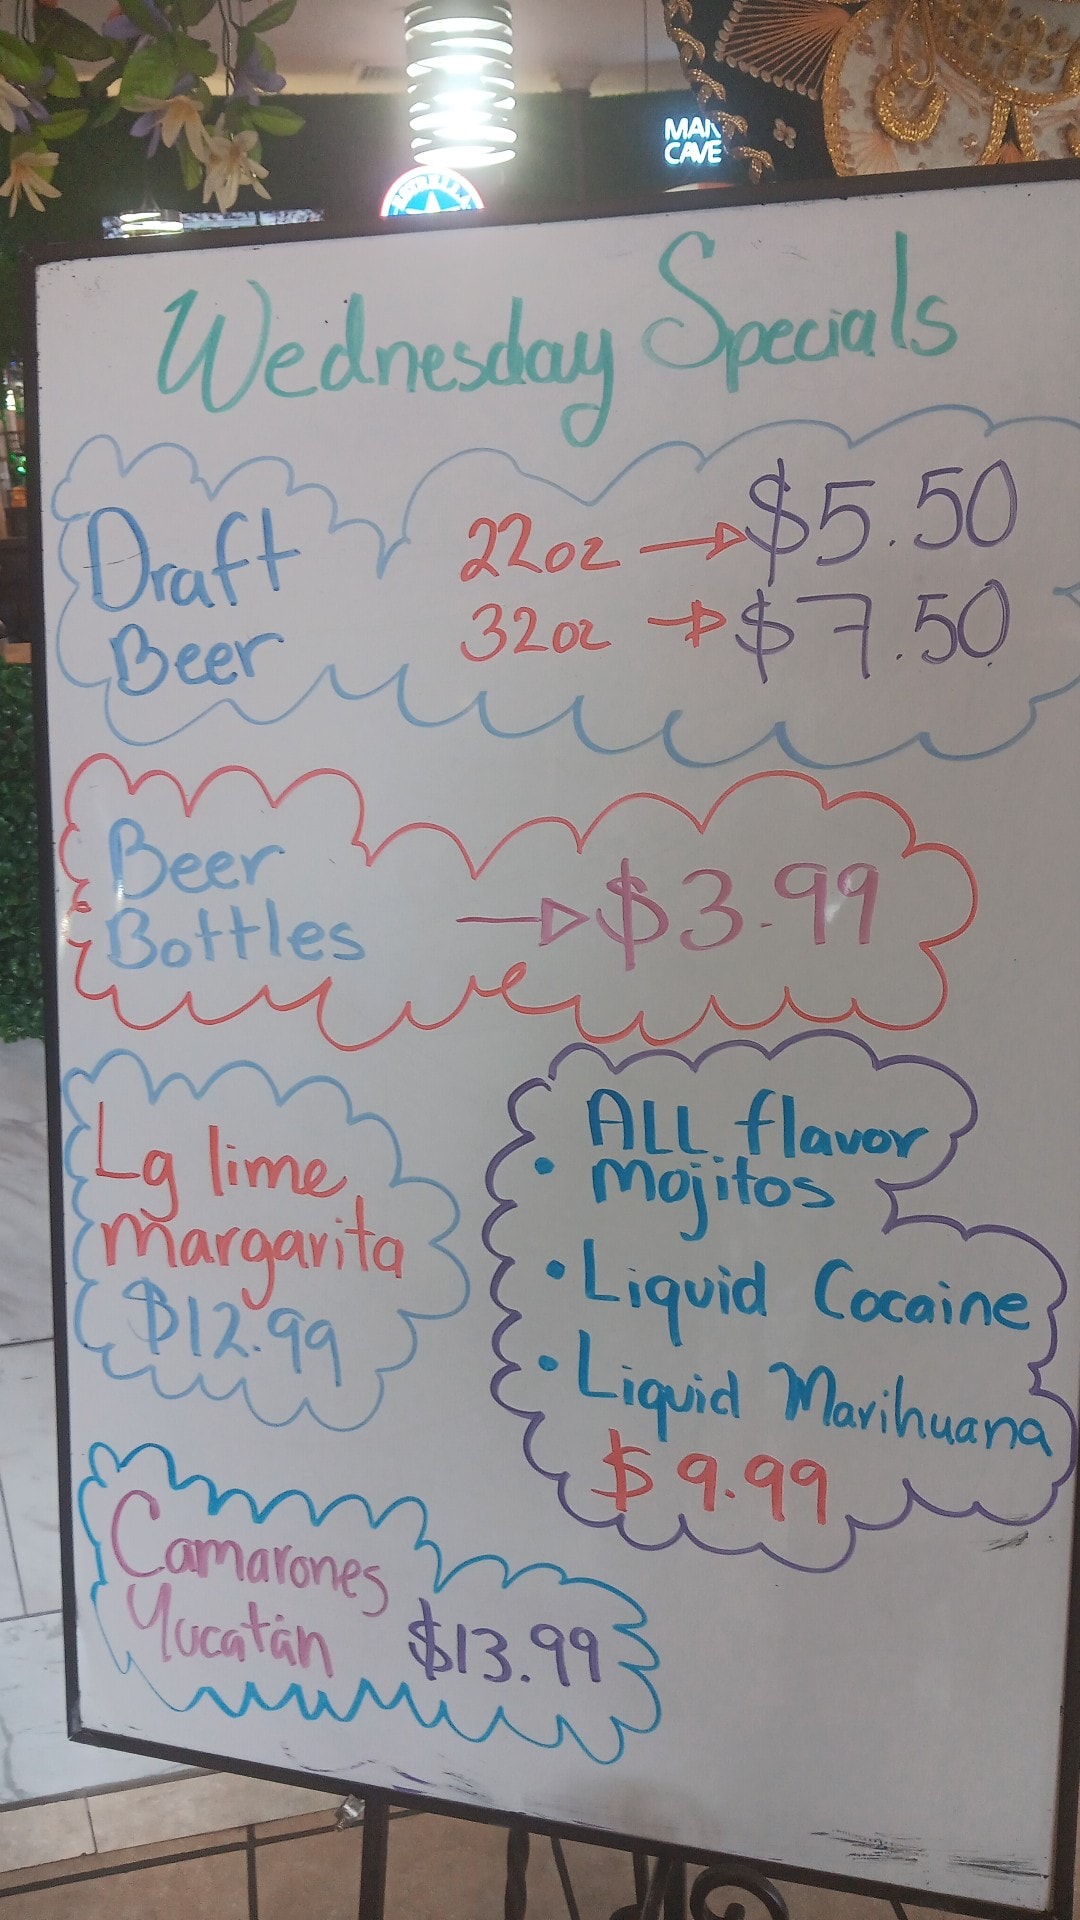 MAN
CAVE
ESTRELLA
Wednesday Specials
Draft
Beer
22oz $5.50
32oz $7.50
Beer
Bottles $3.99
Lg lime
margarita
$12.99
• ALL flavor
Mojitos
• Liquid Cocaine
• Liquid Marihuana
$9.99
Camarones
Yucatán $13.99